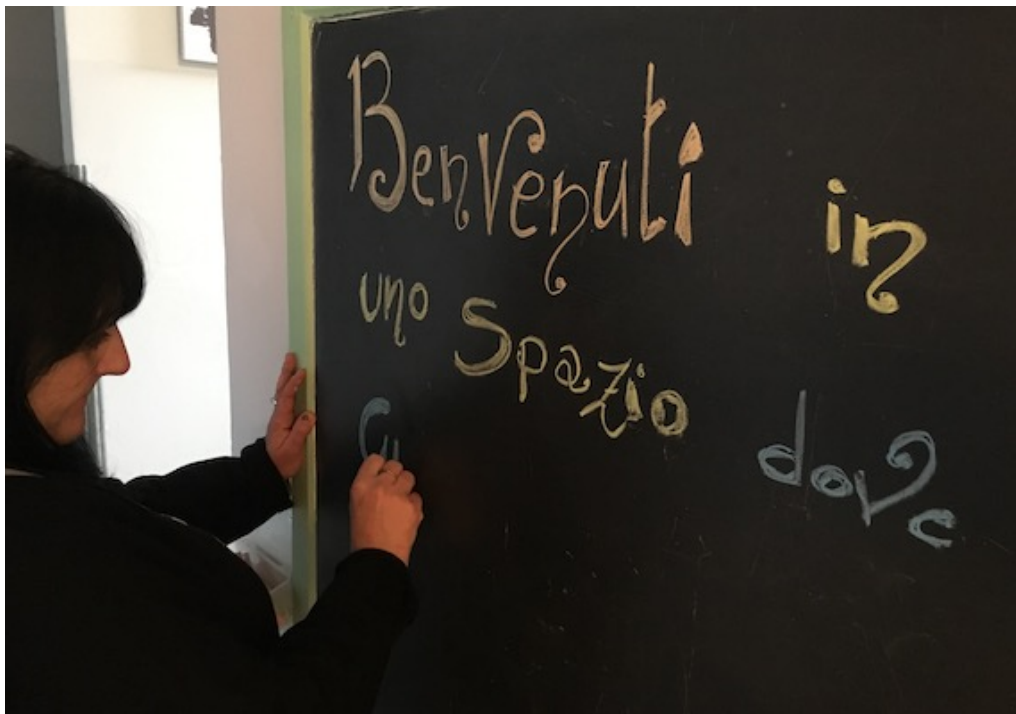 Benvenuti in
uno Spazio dove